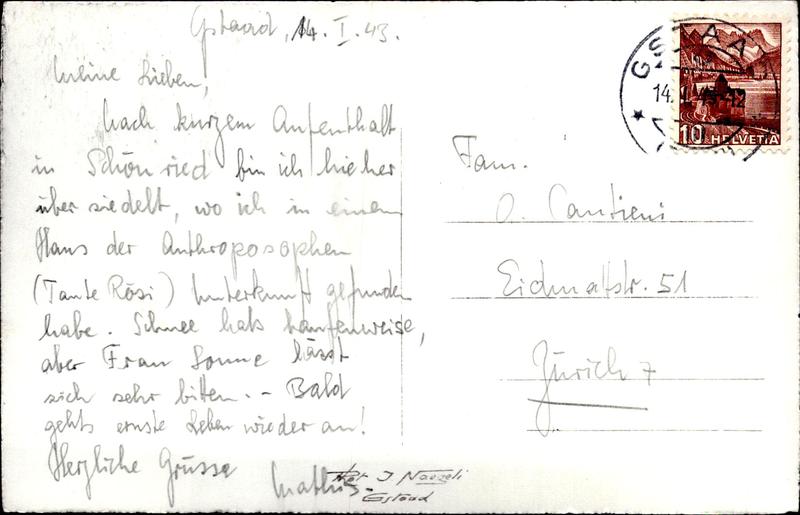 Gstaad, 14. I. 43.
Meine Lieben,
Nach kurzem Aufenthalt
in Schönried bin ich hieher
über siedelt, wo ich in einem
Haus der Anthroposophen
(Tante Rösi) Unterkunft gefunden
habe. Schnee hats haufenweise,
aber Frau Sonne lässt
sich sehr bitten. - Bald
gehts ernste Leben wieder an!
Herzliche Grüsse
Mathis.
Phot J Naegeli
Gstaad
GSTAAD
14. I. 43-12
10 HELVETIA
Fam.
O. Cantieni
Eidmattstr. 51
Zürich 7